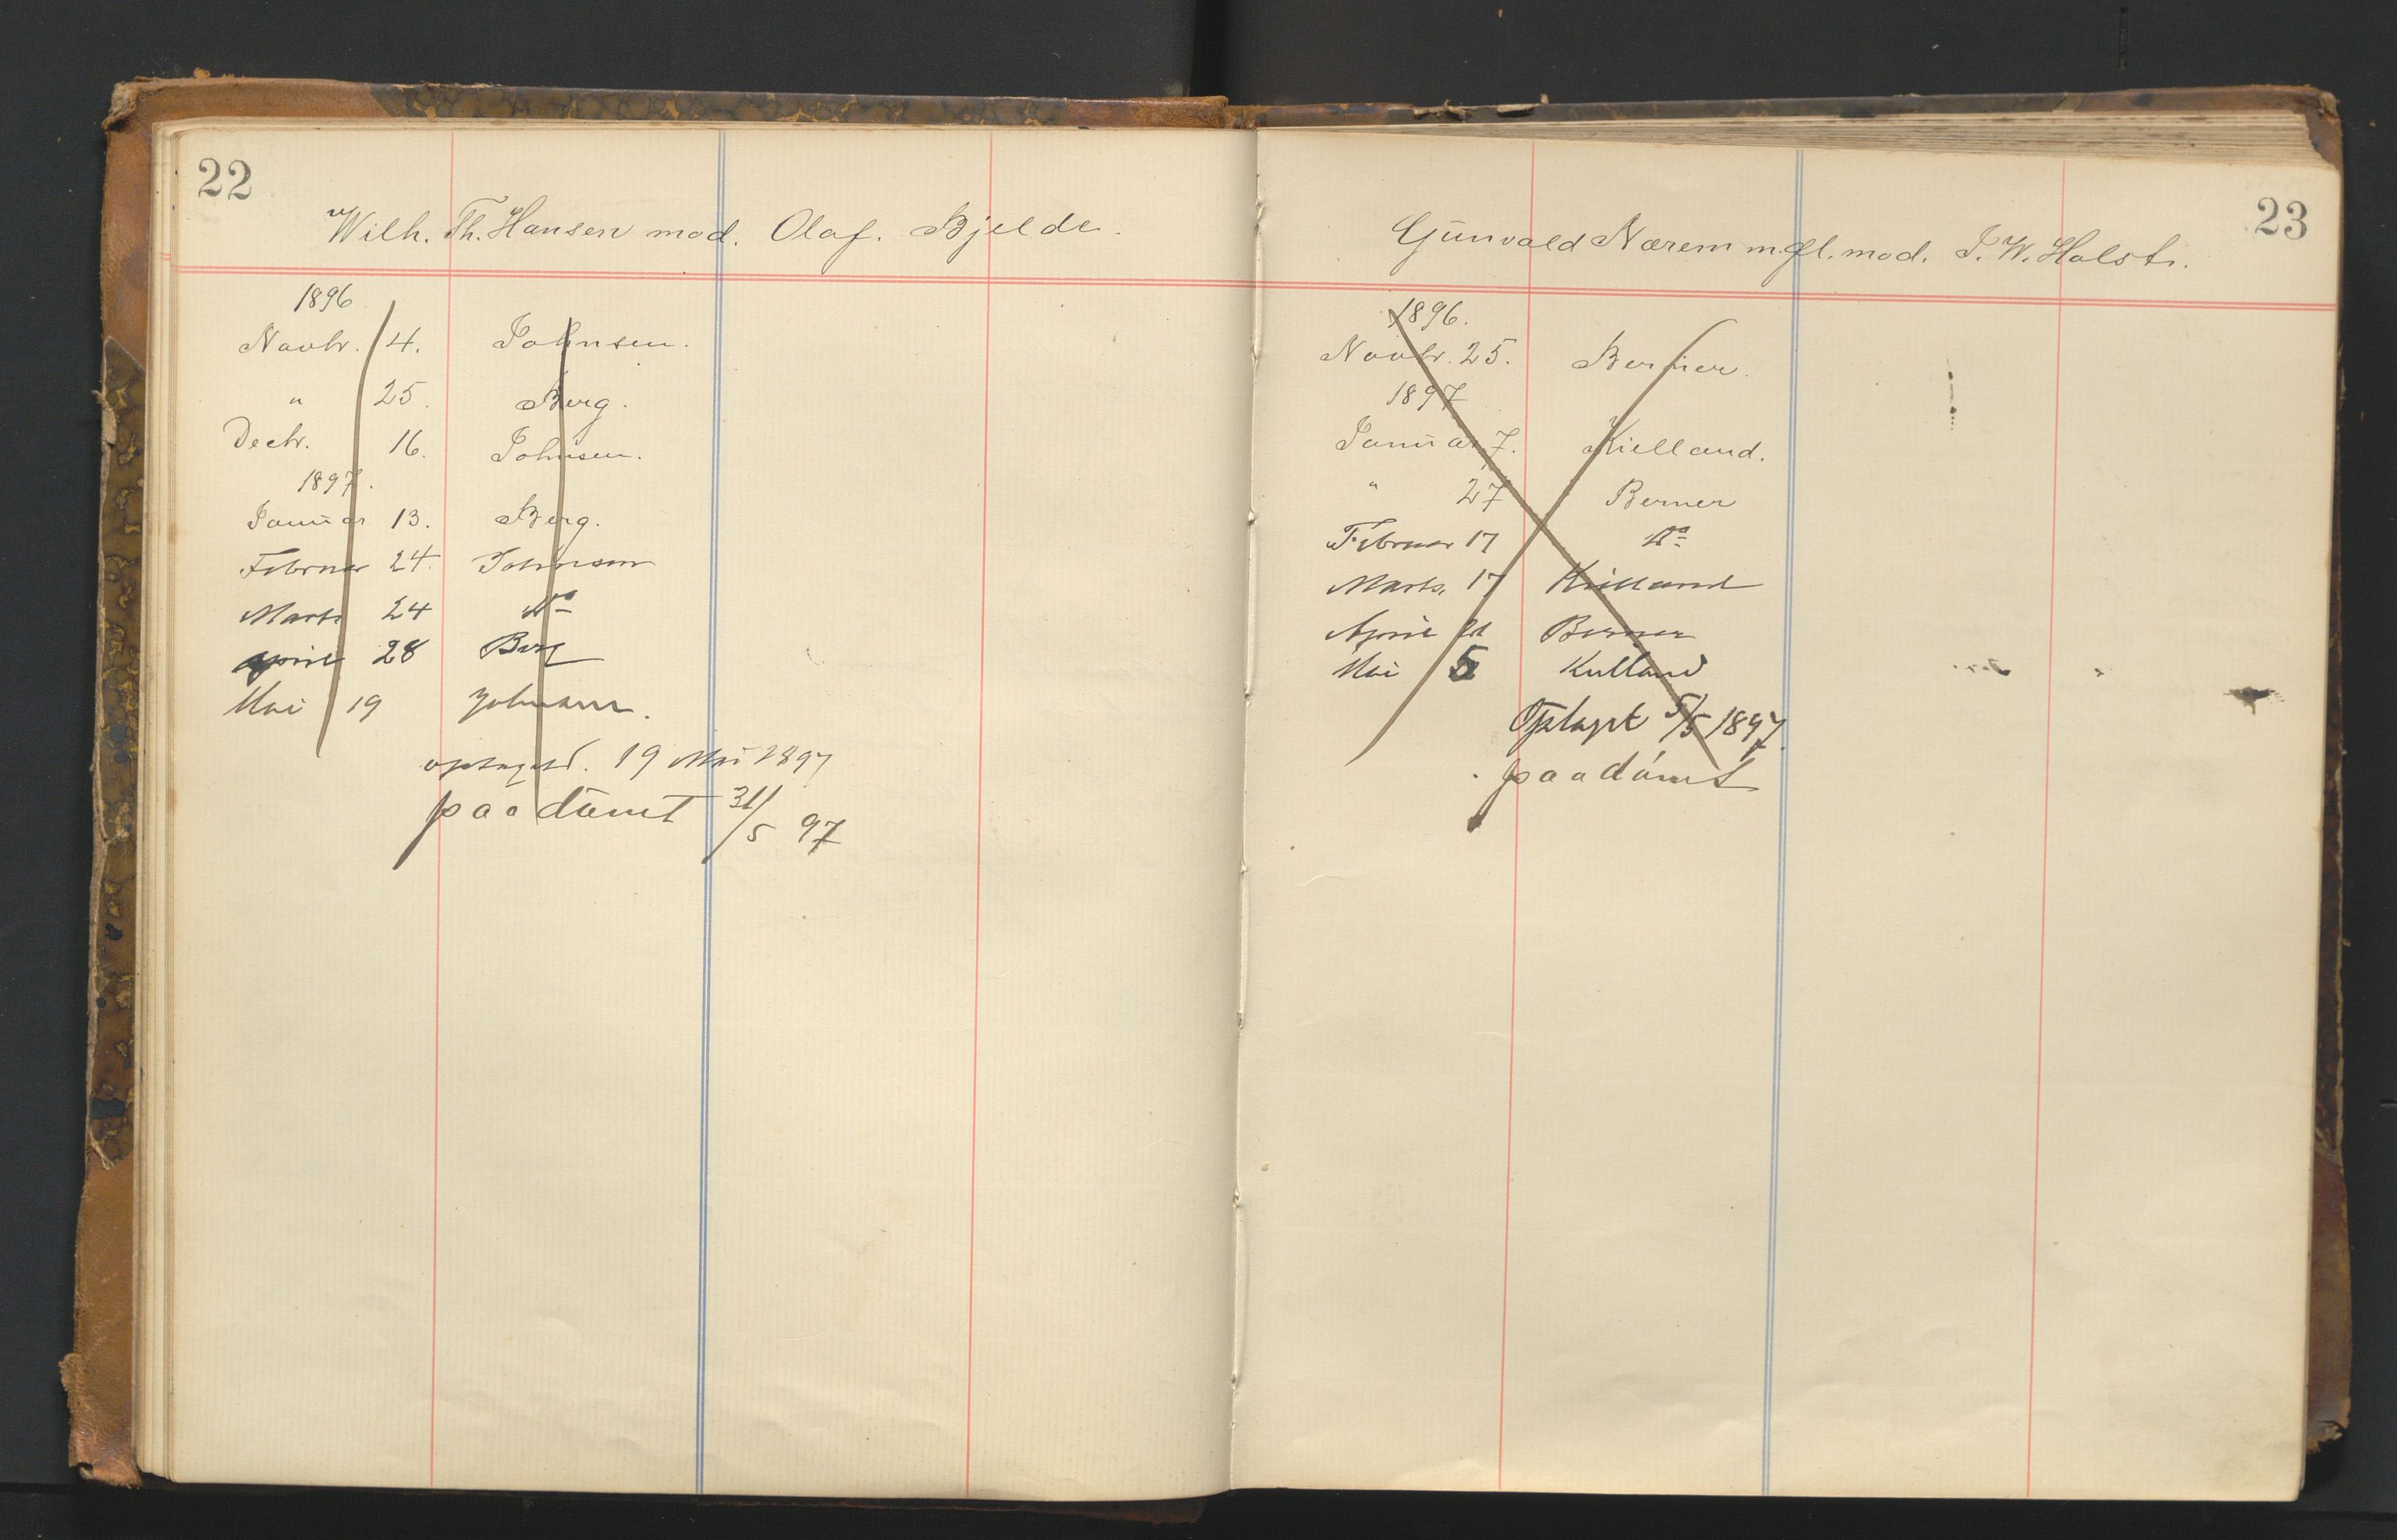 22
Wilh. Th. Hansen mod. Olaf. Bjelde.
1896
Novbr. 4. Johnsen.
" 25. Berg.
Decbr. 16. Johnsen.
1897.
Januar 13. Berg.
Februar 24. Johnsen
Marts 24 Do
April 28 Berg
Mai 19 Johnsen.
optaget. 19 Mai 1897
paadömt 31/5 97
23
Gunvald Nærem m.fl. mod. J. W. Holst.
1896.
Novbr. 25. Berner.
1897
Januar 7. Kielland.
" 27 Berner
Februar 17 Do
Marts. 17 Kielland
April Berner
Mai 5 Kielland
Optaget 5/5 1897.
paadömt